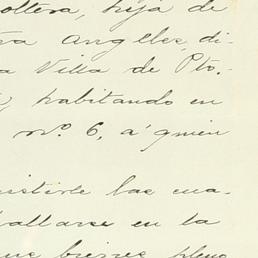 oltera, hija de
Angeles, di-
a Villa de Pto.
habitando en
nº. 6, a' quien
sistirle las cua-
hallarse en la
bienes, pleno